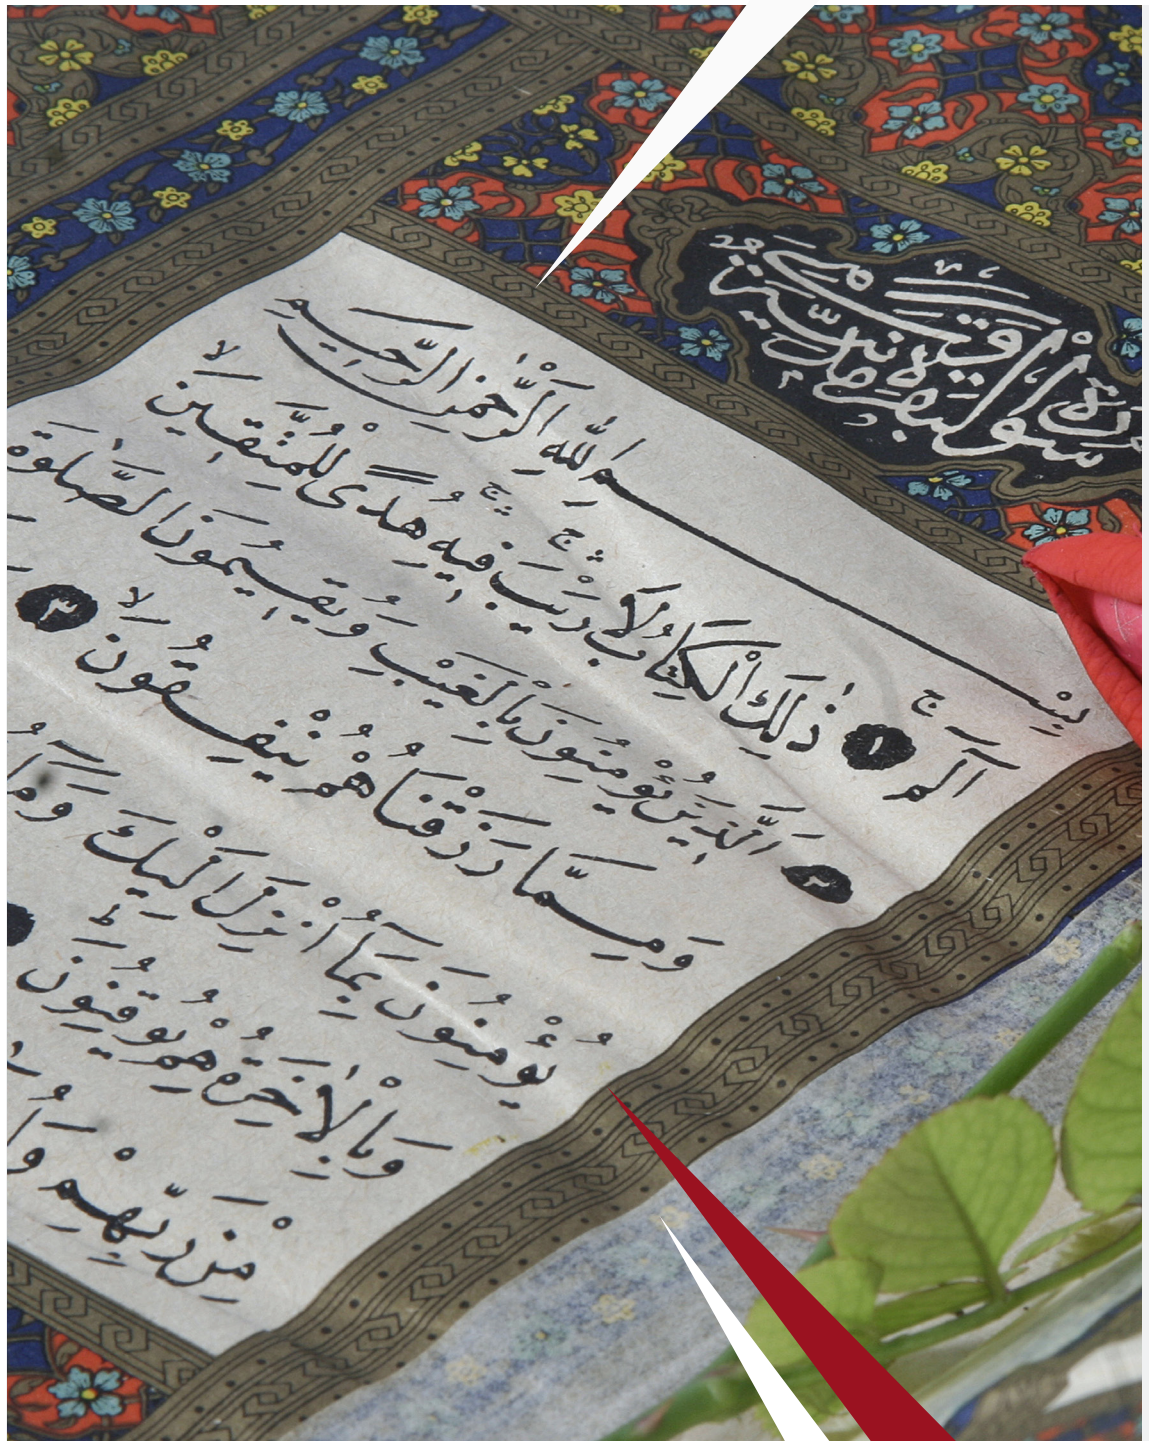 سورة البقرة
بِسْمِ اللّٰهِ الرَّحْمٰنِ الرَّحِيمِ
الٓمٓ ۚ ١ ذٰلِكَ الْكِتَابُ لَا رَيْبَ ۛ ۚ فِيهِ ۛ ۚ هُدًى لِلْمُتَّقِينَ ۙ
٢ الَّذِينَ يُؤْمِنُونَ بِالْغَيْبِ وَيُقِيمُونَ الصَّلٰوةَ
وَمِمَّا رَزَقْنَاهُمْ يُنْفِقُونَ ۙ ٣
يُؤْمِنُونَ بِمَٓا اُنْزِلَ اِلَيْكَ وَمَٓا
وَبِالْاٰخِرَةِ هُمْ يُوقِنُونَ ۜ
مِنْ رَبِّهِمْ